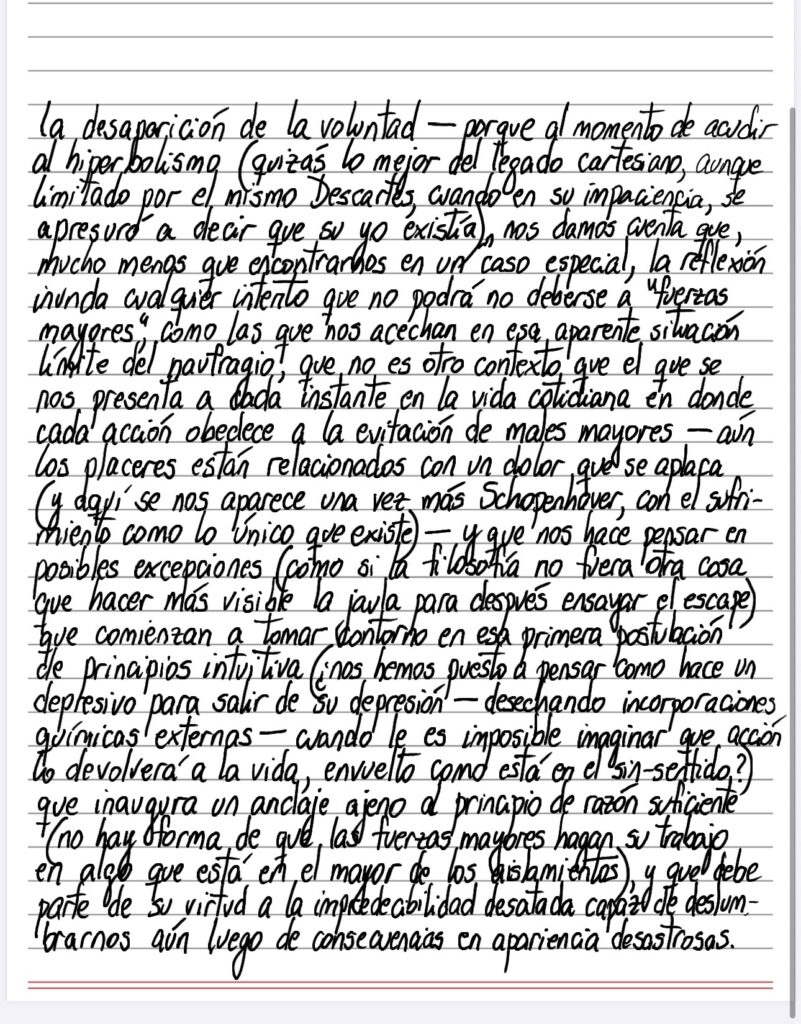 la desaparición de la voluntad — porque al momento de acudir
al hiperbolismo (quizás lo mejor del legado cartesiano, aunque
limitado por el mismo Descartes, cuando en su impaciencia, se
apresuró a decir que su yo existía), nos damos cuenta que,
mucho menos que encontrarnos en un caso especial, la reflexión
inunda cualquier intento que no podrá no deberse a "fuerzas
mayores", como las que nos acechan en esa aparente situación
límite del naufragio, que no es otro contexto que el que se
nos presenta a cada instante en la vida cotidiana en donde
cada acción obedece a la evitación de males mayores — aún
los placeres están relacionados con un dolor que se aplaca
(y aquí se nos aparece una vez más Schopenhauer, con el sufri-
miento como lo único que existe) — y que nos hace pensar en
posibles excepciones (como si la filosofía no fuera otra cosa
que hacer más visible la jaula para después ensayar el escape)
que comienzan a tomar contorno en esa primera postulación
de principios intuitiva (¿nos hemos puesto a pensar como hace un
depresivo para salir de su depresión — desechando incorporaciones
químicas externas — cuando le es imposible imaginar que acción
lo devolverá a la vida, envuelto como está en el sin-sentido?)
que inaugura un anclaje ajeno al principio de razón suficiente
(no hay forma de que las fuerzas mayores hagan su trabajo
en algo que está en el mayor de los aislamientos), y que debe
parte de su virtud a la impredecibilidad desatada capaz de deslum-
brarnos aún luego de consecuencias en apariencia desastrosas.